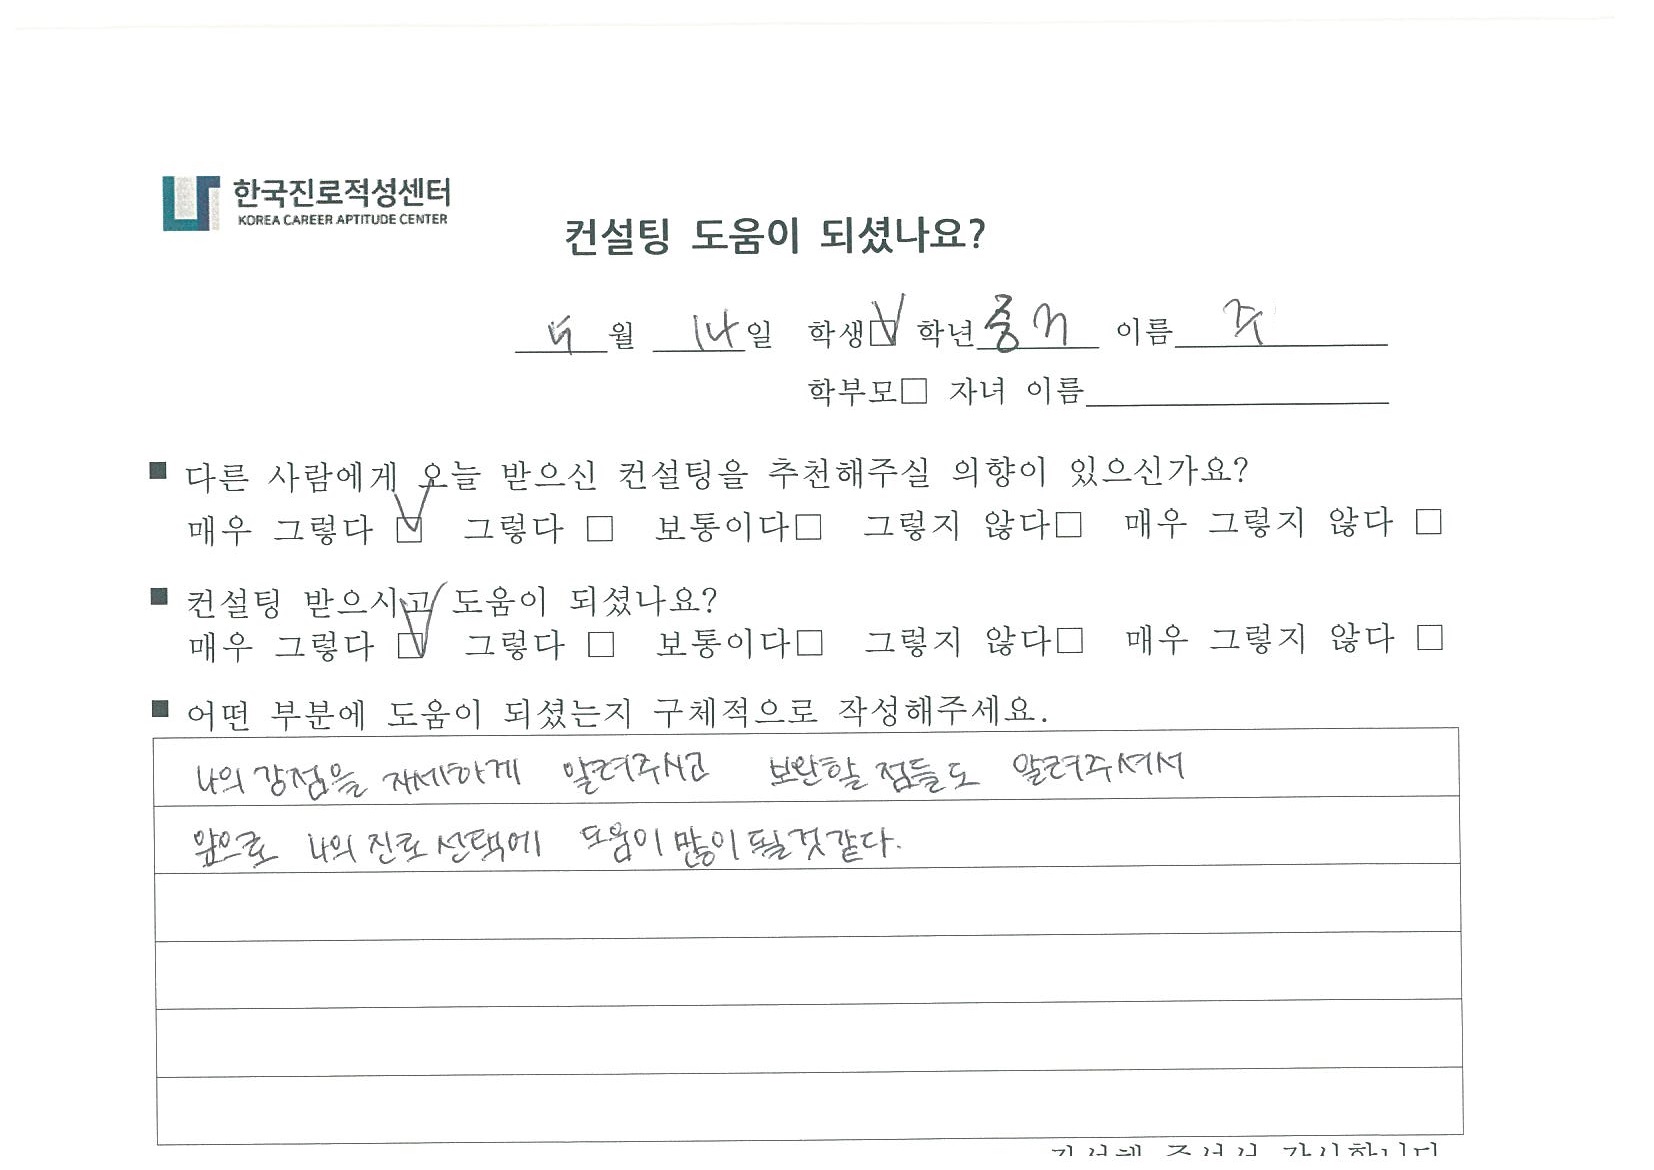 한국진로적성센터
KOREA CAREER APTITUDE CENTER
컨설팅 도움이 되셨나요?
월 14일 학생☑ 학년 중 이름 주
학부모□ 자녀 이름
■ 다른 사람에게 오늘 받으신 컨설팅을 추천해주실 의향이 있으신가요?
매우 그렇다 ☑ 그렇다 □ 보통이다□ 그렇지 않다□ 매우 그렇지 않다 □
■ 컨설팅 받으시고 도움이 되셨나요?
매우 그렇다 ☑ 그렇다 □ 보통이다□ 그렇지 않다□ 매우 그렇지 않다 □
■ 어떤 부분에 도움이 되셨는지 구체적으로 작성해주세요.
나의 강점을 자세하게 알려주시고 보완할 점들도 알려주셔서
앞으로 나의 진로 선택에 도움이 많이 될것 같다.